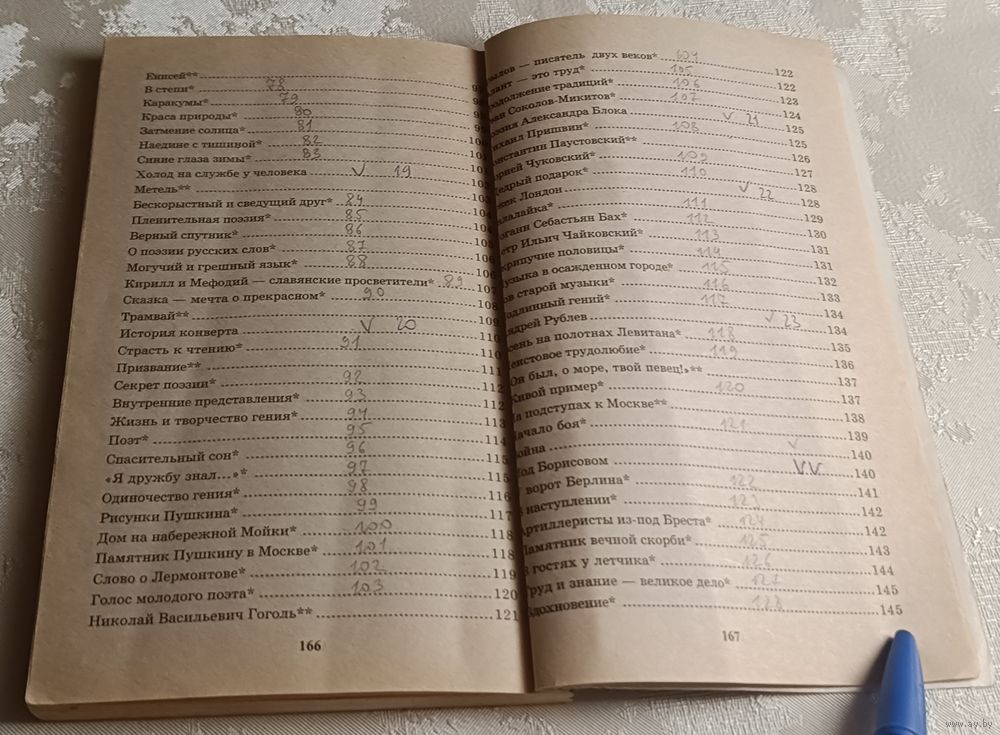 Енисей**
В степи* 78
Каракумы* 79
Краса природы* 80
Затмение солнца* 81
Наедине с тишиной* 82
Синие глаза зимы* 83
Холод на службе у человека V 19
Метель**
Бескорыстный и сведущий друг* 84 103
Пленительная поэзия* 85 104
Верный спутник* 86 105
О поэзии русских слов* 87 106
Могучий и грешный язык* 88 106
Кирилл и Мефодий — славянские просветители* 89 107
Сказка — мечта о прекрасном* 90 108
Трамвай** 109
История конверта V 20 110
Страсть к чтению* 91 110
Призвание** 111
Секрет поэзии* 92 112
Внутренние представления* 93 112
Жизнь и творчество гения* 94 113
Поэт* 95 114
Спасительный сон* 96 115
«Я дружбу знал...»* 97 115
Одиночество гения* 98 116
Рисунки Пушкина* 99 117
Дом на набережной Мойки* 100 118
Памятник Пушкину в Москве* 101 118
Слово о Лермонтове* 102 119
Голос молодого поэта* 103 120
Николай Васильевич Гоголь** 121
166
ылов — писатель двух веков* 104 122
лант — это труд* 105 122
одолжение традиций* 106 123
ан Соколов-Микитов* 107 124
эзия Александра Блока V 21 125
хаил Пришвин* 108 125
онстантин Паустовский* 126
орней Чуковский* 109 127
едрый подарок* 110 128
жек Лондон V 22 128
алалайка* 111 129
оганн Себастьян Бах* 112 130
тр Ильич Чайковский* 113 131
крипучие половицы* 114 131
узыка в осажденном городе* 115 132
ов старой музыки* 116 133
одлинный гений* 117 134
ндрей Рублев V 23 134
сень на полотнах Левитана* 118 135
еистовое трудолюбие* 119 136
Он был, о море, твой певец!»** 137
Живой пример* 120 137
На подступах к Москве** 138
ачало боя* 121 139
ойна V 140
Под Борисовом VV 140
ворот Берлина* 122 141
наступлении* 123 142
Артиллеристы из-под Бреста* 124 142
Памятник вечной скорби* 125 143
В гостях у летчика* 126 144
Труд и знание — великое дело* 127 145
Вдохновение* 128 145
167
www.ay.by